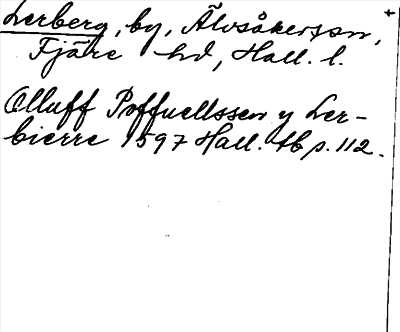 Lerberg, by, Älvsåkers sn, +
Fjäre hd, Hall. l.
Olluff Poffuellssen y Ler-
bierre 1597 Hall. tb p. 112.